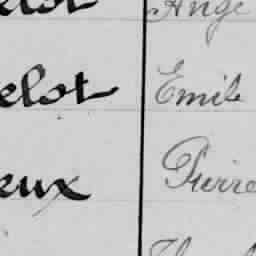 elot Ange
elot Emile
eux Pierre